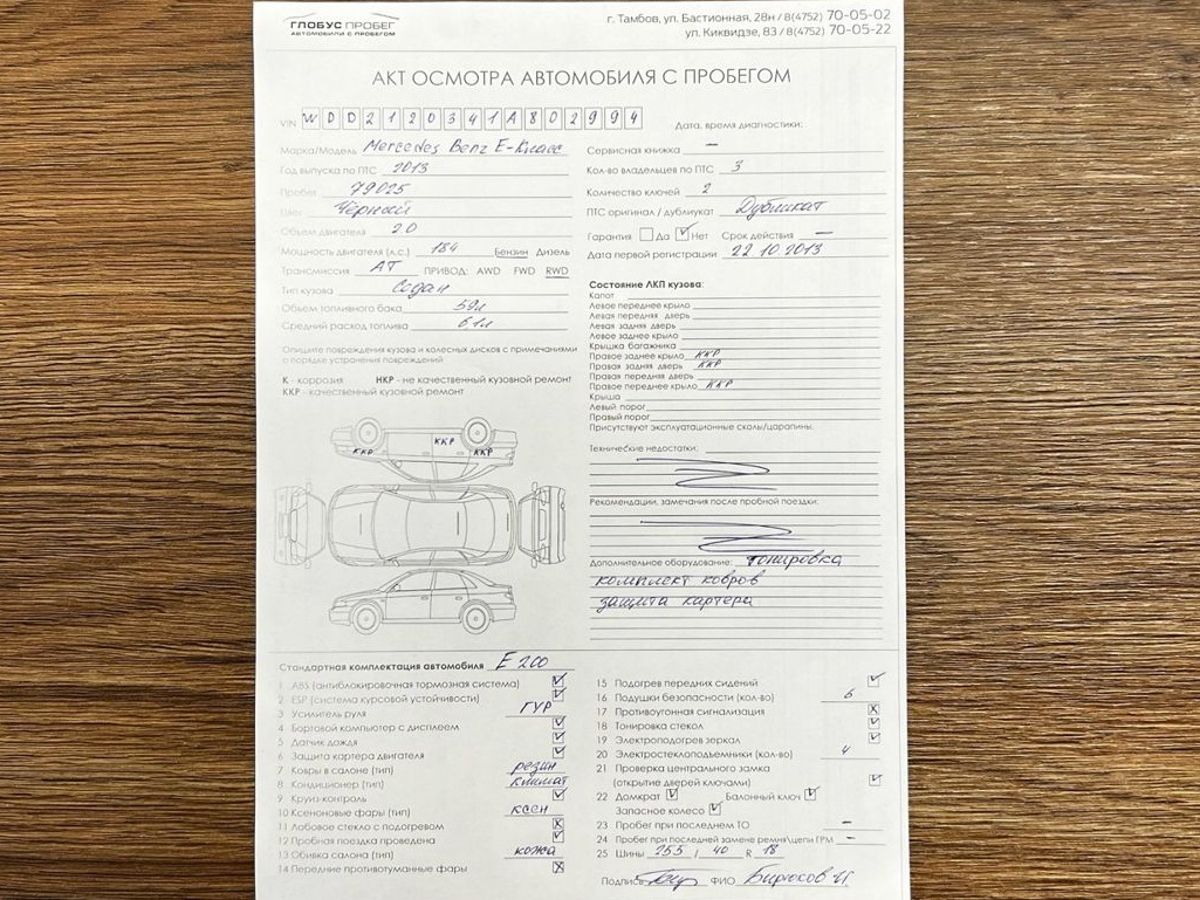 ГЛОБУС ПРОБЕГ
АВТОМОБИЛИ С ПРОБЕГОМ
г. Тамбов, ул. Бастионная, 28н / 8(4752) 70-05-02
ул. Киквидзе, 83 / 8(4752) 70-05-22
АКТ ОСМОТРА АВТОМОБИЛЯ С ПРОБЕГОМ
VIN W D D 2 1 2 0 3 4 1 A 8 0 2 9 9 4
Марка/Модель Mercedes Benz E-Класс
Год выпуска по ПТС 2013
Пробег 79025
Цвет Чёрный
Объем двигателя 2.0
Мощность двигателя (л.с.) 184 Бензин Дизель
Трансмиссия АТ ПРИВОД: AWD FWD RWD
Тип кузова Седан
Объем топливного бака 59л
Средний расход топлива 6.1л
Опишите повреждения кузова и колесных дисков с примечаниями
о порядке устранения повреждений
К - коррозия НКР - не качественный кузовной ремонт
ККР - качественный кузовной ремонт
ККР ККР ККР
Дата, время диагностики:
Сервисная книжка —
Кол-во владельцев по ПТС 3
Количество ключей 2
ПТС оригинал / дубликат Дубликат
Гарантия Да Нет Срок действия —
Дата первой регистрации 22.10.2013
Состояние ЛКП кузова:
Капот
Левое переднее крыло
Левая передняя дверь
Левая задняя дверь
Левое заднее крыло
Крышка багажника
Правое заднее крыло ККР
Правая задняя дверь ККР
Правая передняя дверь
Правое переднее крыло ККР
Крыша
Левый порог
Правый порог
Присутствуют эксплуатационные сколы/царапины.
Технические недостатки:
Рекомендации, замечания после пробной поездки:
Дополнительное оборудование: тонировка
комплект ковров
защита картера
Стандартная комплектация автомобиля E 200
1 ABS (антиблокировочная тормозная система)
2 ESP (система курсовой устойчивости)
3 Усилитель руля ГУР
4 Бортовой компьютер с дисплеем
5 Датчик дождя
6 Защита картера двигателя
7 Ковры в салоне (тип) резин
8 Кондиционер (тип) климат
9 Круиз-контроль
10 Ксеноновые фары (тип) ксен
11 Лобовое стекло с подогревом
12 Пробная поездка проведена
13 Обивка салона (тип) кожа
14 Передние противотуманные фары
15 Подогрев передних сидений
16 Подушки безопасности (кол-во) 6
17 Противоугонная сигнализация
18 Тонировка стекол
19 Электроподогрев зеркал
20 Электростеклоподъемники (кол-во) 4
21 Проверка центрального замка
(открытие дверей ключами)
22 Домкрат Балонный ключ
Запасное колесо
23 Пробег при последнем ТО —
24 Пробег при последней замене ремня\цепи ГРМ —
25 Шины 255 / 40 R 18
Подпись ФИО Бирюков И